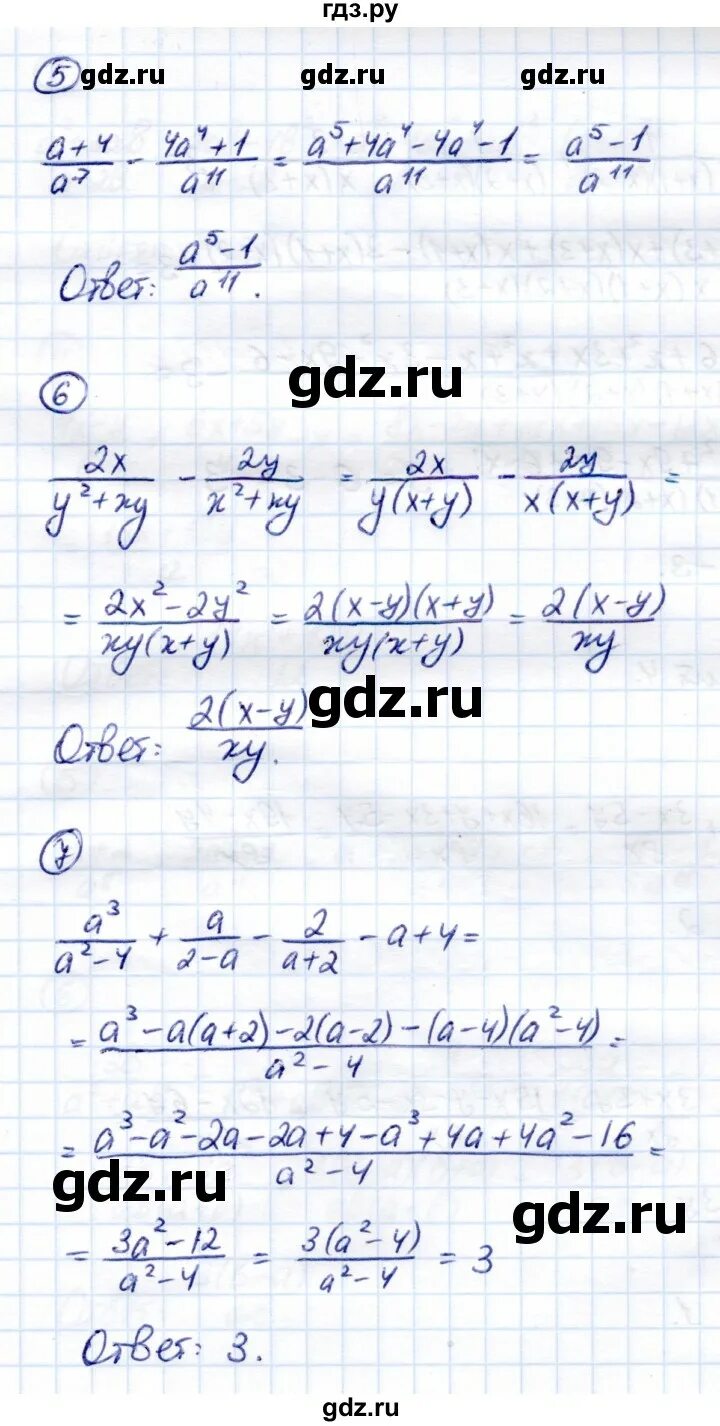 гдз.ру
5 gdz.ru gdz.ru
(a+4)/a⁷ - (4a⁴+1)/a¹¹ = (a⁵+4a⁴-4a⁴-1)/a¹¹ = (a⁵-1)/a¹¹
Ответ: (a⁵-1)/a¹¹.
gdz.ru
6
2x/(y²+xy) - 2y/(x²+xy) = 2x/(y(x+y)) - 2y/(x(x+y)) =
= (2x²-2y²)/(xy(x+y)) = (2(x-y)(x+y))/(xy(x+y)) = (2(x-y))/(xy)
Ответ: (2(x-y))/(xy). gdz.ru
7
a³/(a²-4) + a/(2-a) - 2/(a+2) - a+4=
= (a³-a(a+2)-2(a-2)-(a-4)(a²-4))/(a²-4) =
= (a³-a²-2a-2a+4-a³+4a+4a²-16)/(a²-4) =
gdz.ru gdz.ru
= (3a²-12)/(a²-4) = (3(a²-4))/(a²-4) = 3
Ответ: 3.
gdz.ru